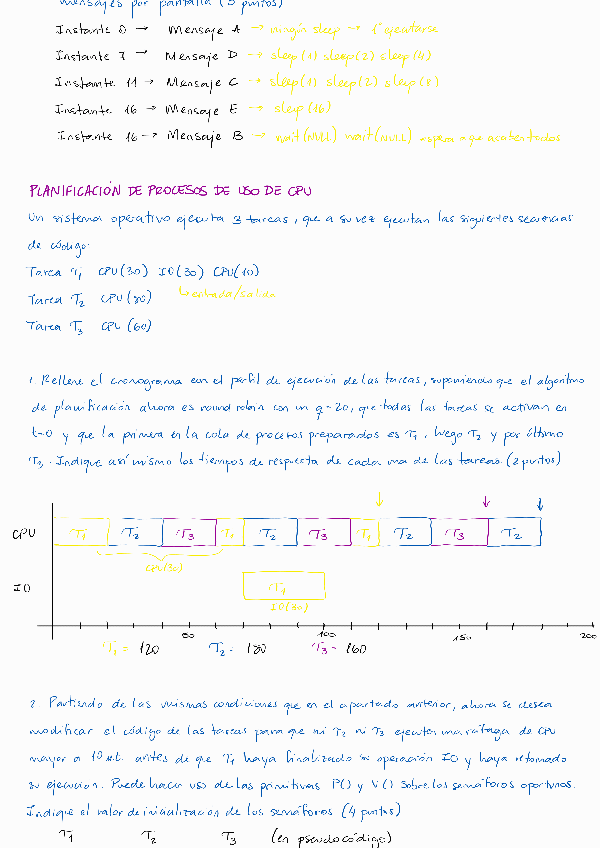 mensajes por pantalla (3 puntos)
Instante 0 → Mensaje A → ningún sleep → 1º ejecutarse
Instante 7 → Mensaje D → sleep(1) sleep(2) sleep(4)
Instante 11 → Mensaje C → sleep(1) sleep(2) sleep(8)
Instante 16 → Mensaje E → sleep(16)
Instante 16 → Mensaje B → wait(NULL) wait(NULL) espera a que acaben todos
PLANIFICACIÓN DE PROCESOS DE USO DE CPU
Un sistema operativo ejecuta 3 tareas, que a su vez ejecutan las siguientes secuencias
de código:
Tarea T1 CPU(30) IO(30) CPU(10)
Tarea T2 CPU(80) ↳ entrada/salida
Tarea T3 CPU (60)
1. Rellene el cronograma con el perfil de ejecución de las tareas, suponiendo que el algoritmo
de planificación ahora es round robin con un q=20, que todas las tareas se activan en
t=0 y que la primera en la cola de procesos preparados es T1, luego T2 y por último
T3. Indique así mismo los tiempos de respuesta de cada una de las tareas (2 puntos)
CPU T1 T2 T3 T1 T2 T3 T1 T2 T3 T2
CPU(30)
IO T1
IO(30)
50 100 150 200
T1 = 120 T2 = 180 T3 = 160
2. Partiendo de las mismas condiciones que en el apartado anterior, ahora se desea
modificar el código de las tareas para que ni T2 ni T3 ejecuten una ráfaga de CPU
mayor a 10 u.t. antes de que T1 haya finalizado su operación IO y haya retomado
su ejecución. Puede hacer uso de las primitivas P() y V() sobre los semáforos oportunos.
Indique el valor de inicialización de los semáforos (4 puntos)
T1 T2 T3 (en pseudocódigo)